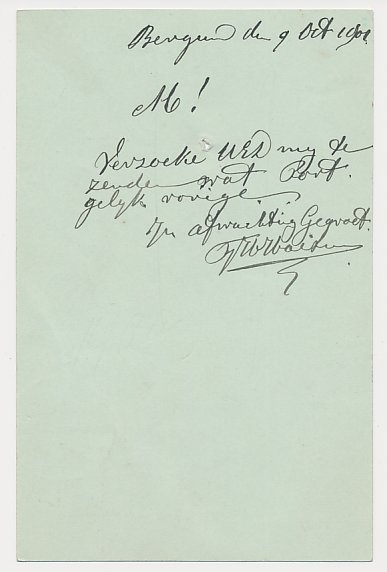 den 9 Oct 1901
M!
Verzoeke UEd my te
zenden wat Port.
gelyk vorige.
In afwachting Gegroet.